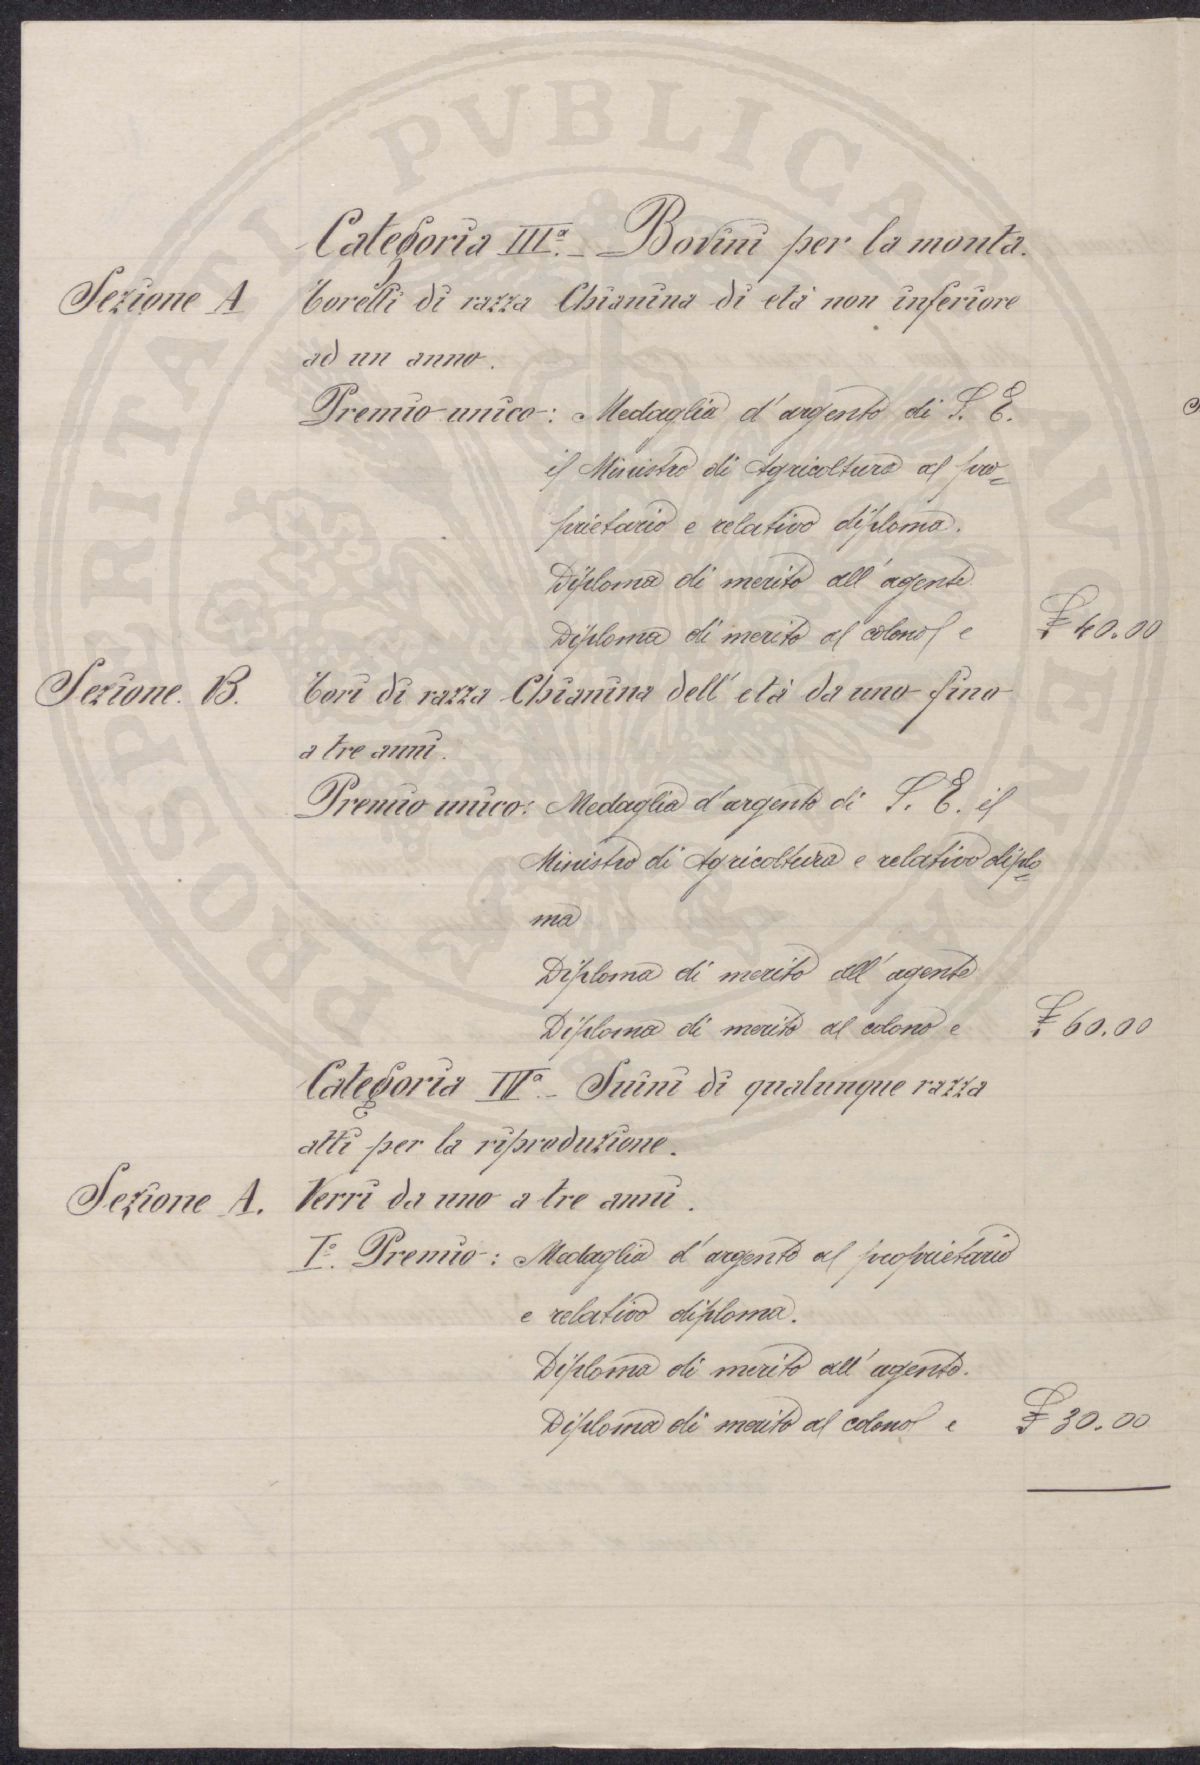 Categoria IIIª. - Bovini per la monta.
Sezione A Torelli di razza Chianina di età non inferiore
ad un anno.
Premio unico: Medaglia d'argento di S. E.
il Ministro di Agricoltura al pro=
prietario e relativo diploma.
Diploma di merito all'agente.
Diploma di merito al colono e £ 40.00
Sezione. B. Tori di razza Chianina dell'età da uno fino
a tre anni.
Premio unico: Medaglia d'argento di S. E. il
Ministro di Agricoltura e relativo diplo=
ma
Diploma di merito all'agente
Diploma di merito al colono e £ 60.00
Categoria IVª. - Suini di qualunque razza
atti per la riproduzione.
Sezione A. Verri da uno a tre anni.
Iº. Premio: Medaglia d'argento al proprietario
e relativo diploma.
Diploma di merito all'agente.
Diploma di merito al colono e £ 30.00
PROSPERITATI PVBLICAE AVGENDAE